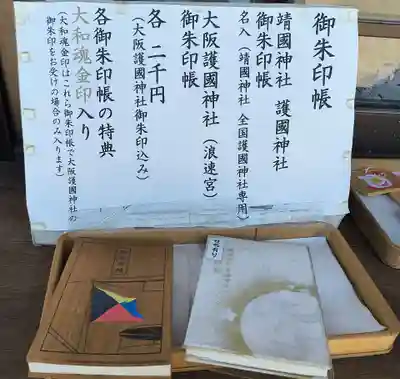 御朱印帳
靖國神社 護國神社
御朱印帳
名入(靖國神社 全国護國神社専用)
大阪護國神社(浪速宮)
御朱印帳
各 二千円
(大阪護國神社御朱印込み)
各御朱印帳の特典
大和魂金印入り
(大和魂金印はこれら御朱印帳で大阪護國神社の
御朱印をお受けの場合のみ入ります)